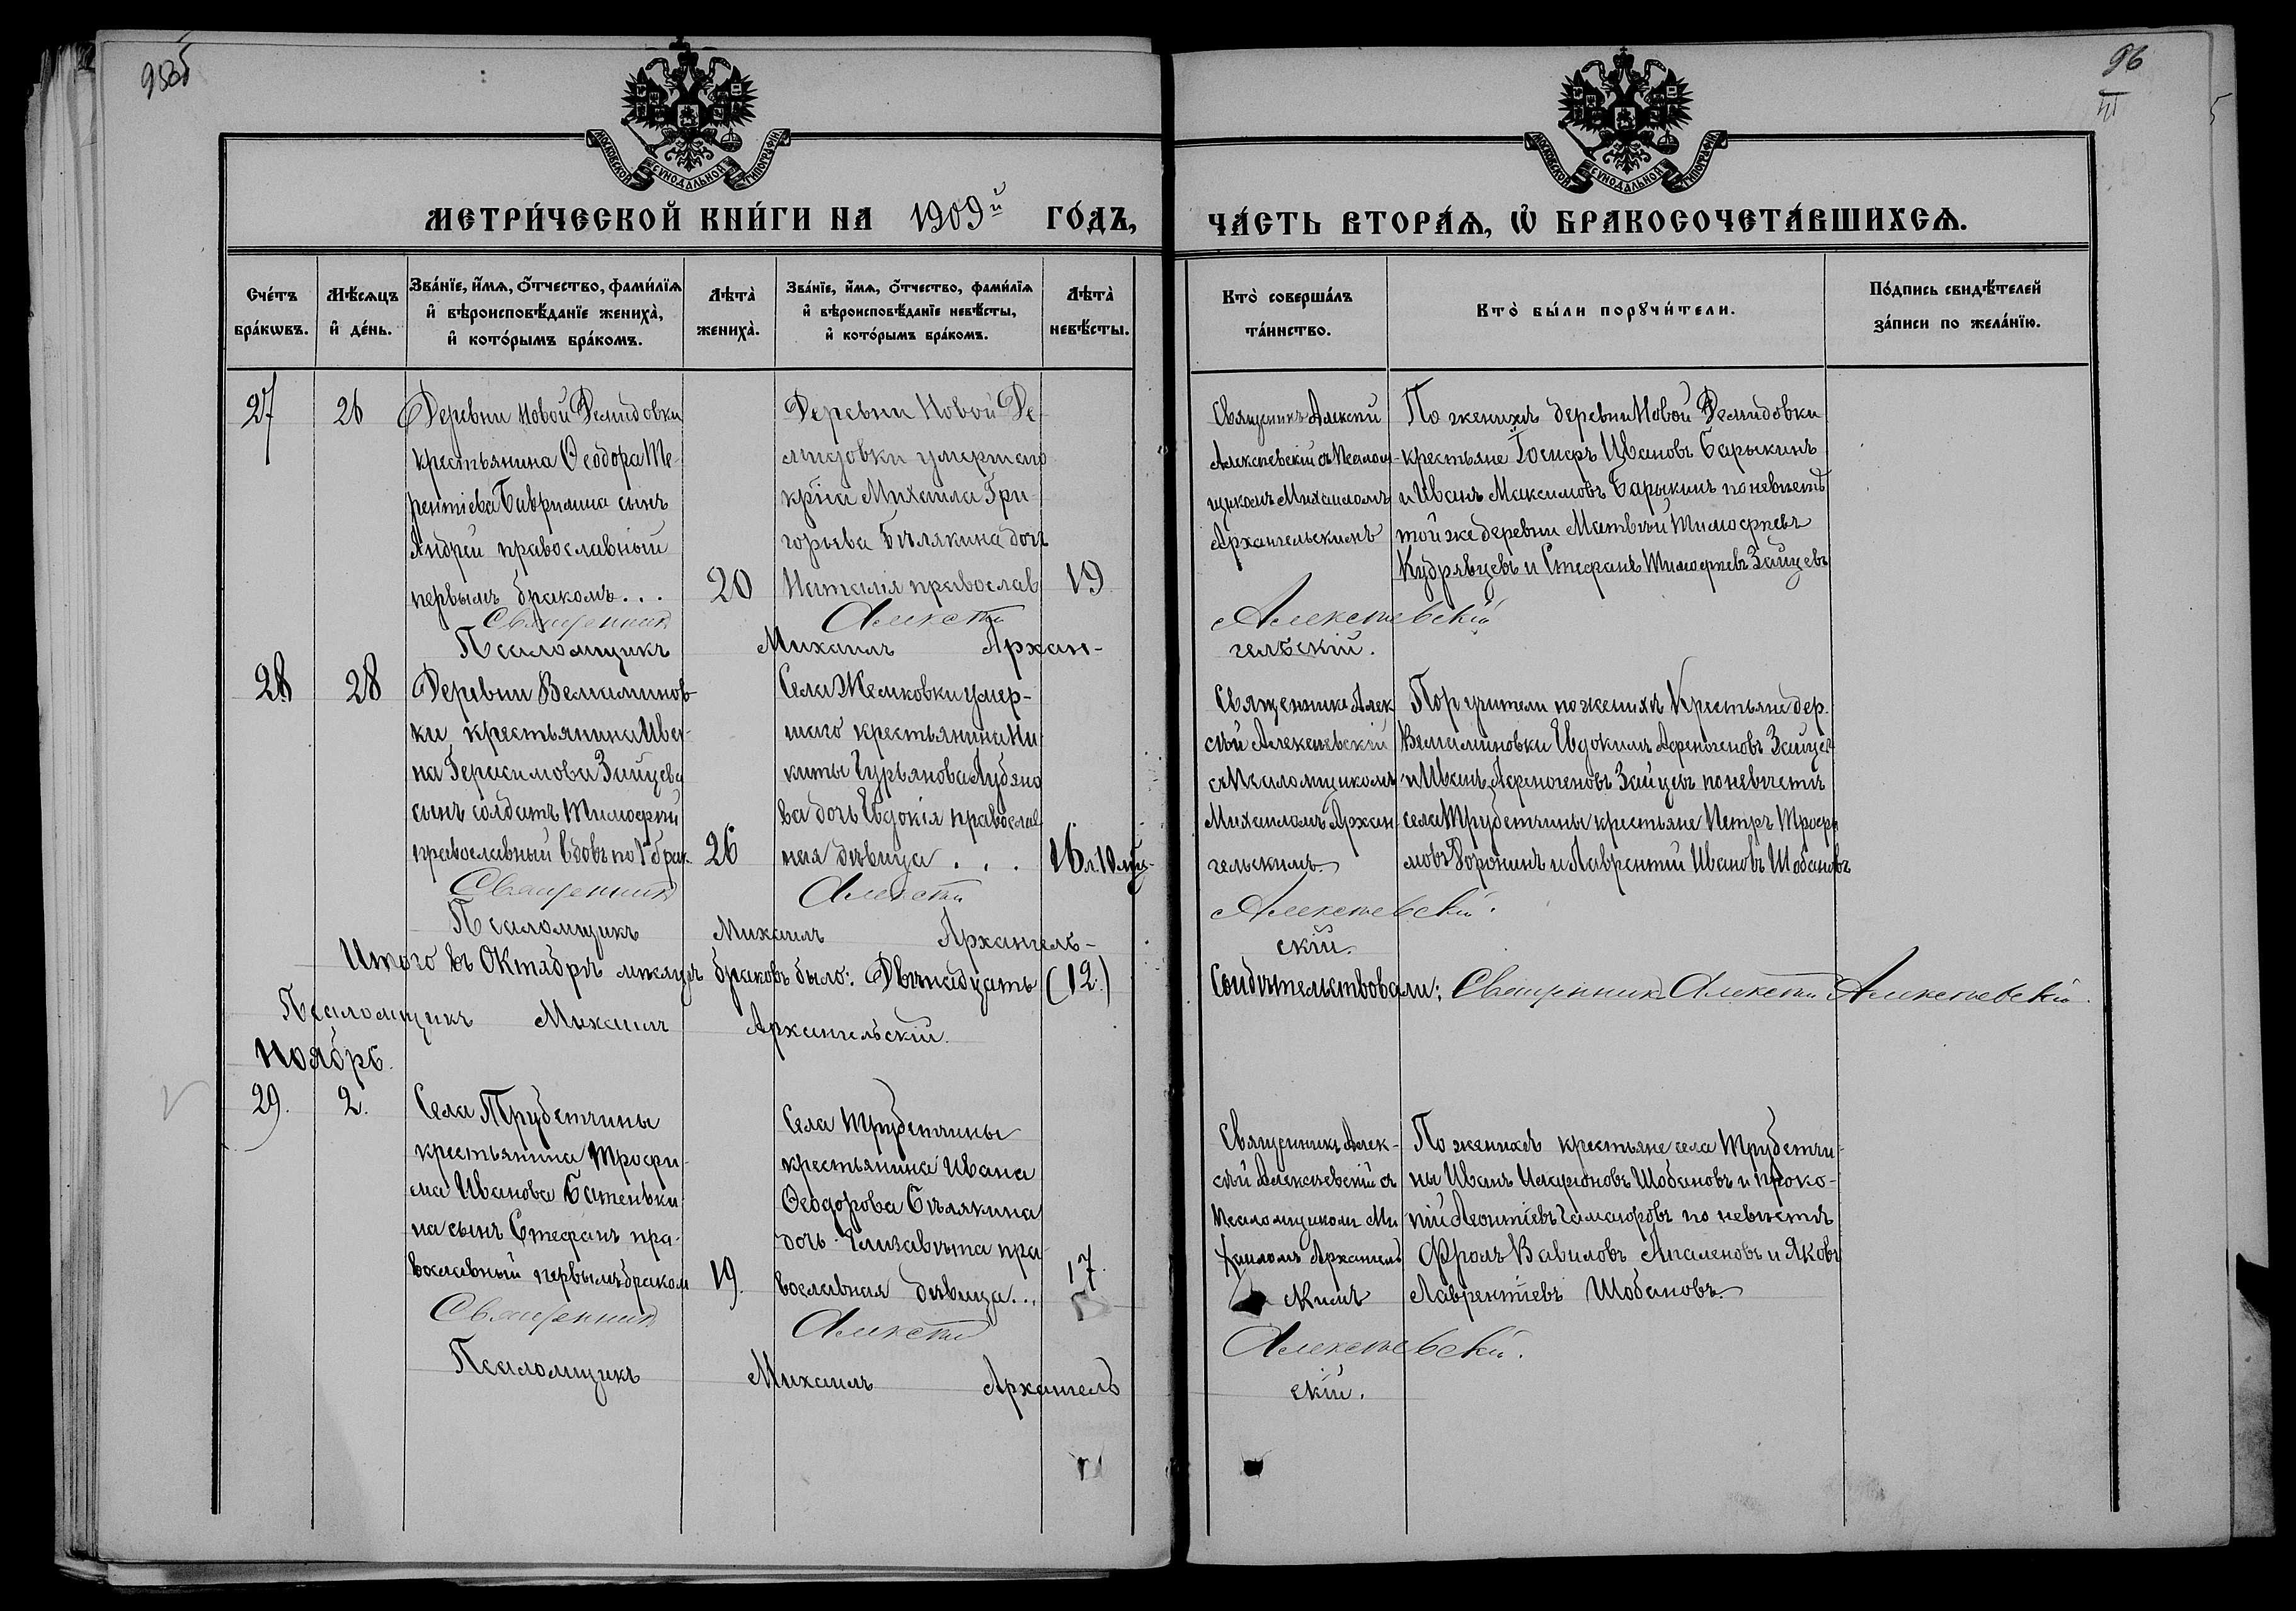 96
МОСКОВСКОЙ СѴНОДАЛЬНОЙ ТИПОГРАФІИ
МОСКОВСКОЙ СѴНОДАЛЬНОЙ ТИПОГРАФІИ
МЕТРИ́ЧЕСКОЙ КНИ́ГИ НА 1909й ГО́ДЪ,
ЧА́СТЬ ВТОРА́Ѧ, Ѡ҆ БРАКОСОЧЕТА́ВШИХСѦ.
Сче́тъ
бра́кѡвъ.
Мѣ́сѧцъ
и҆ де́нь.
Зва́нїе, и҆́мѧ, ѻ҆́тчество, фами́лїѧ
и҆ вѣроисповѣ́данїе жениха̀,
и҆ кото́рымъ бра́комъ.
Лѣта̀
жениха̀.
Зва́нїе, и҆́мѧ, ѻ҆́тчество, фами́лїѧ
и҆ вѣроисповѣ́данїе невѣ́сты,
и҆ кото́рымъ бра́комъ.
Лѣта̀
невѣ́сты.
Кто̀ соверша́лъ
та́инство.
Кто̀ бы́ли порꙋчи́тели.
По́дпись свидѣ́телей
за́писи по жела́нїю.
27
26
Деревни Новой Демидовки
крестьянина Ѳеодора Те-
рентіева Гаврилина сынъ
Андрей православный
первымъ бракомъ...
20
Деревни Новой Де-
мидовки умершаго
кр̃на Михаила Гри-
горьева Бѣлякина дочь
Наталія православ
19
Священникъ Алексѣй
Алексѣевскій съ Псалом-
щикомъ Михаиломъ
Архангельскимъ
По женихѣ деревни Новой Демидовки
крестьяне Іосифъ Ивановъ Барыкинъ
и Иванъ Максимовъ Барыкинъ по невѣстѣ
той же деревни Матвѣй Тимофеевъ
Кудрявцевъ и Стефанъ Тимофеевъ Зайцевъ
Священникъ Алексѣй Алексѣевскій
Псаломщикъ Михаилъ Архан-гельскій.
28
28
Деревни Вельяминов-
ки крестьянина Ива-
на Герасимова Зайцева
сынъ солдатъ Тимофей
православный вдовъ по 1 брак.
26
Села Желковки умер-
шаго крестьянина Ни
киты Гурьянова Лубяно
ва дочь Евдокія православ
ная дѣвица...
16 л. 10 мѣц.
Священникъ Алек
сѣй Алексѣевскій
съ Псаломщикомъ
Михаиломъ Архан-
гельскимъ.
Поручители по женихѣ Крестьяне дер.
Вельяминовки Евдокимъ Афиногеновъ Зайцевъ
и Иванъ Афиногеновъ Зайцевъ по невѣстѣ
села Трубетчины крестьяне Петръ Трофи
мовъ Доронинъ и Лаврентій Ивановъ Шобановъ
Священникъ Алексѣй Алексѣевскій.
Псаломщикъ Михаилъ Архангель-скій.
Итого въ Октябрѣ мѣсяцѣ браковъ было: Двѣнадцать (12.)
Свидѣтельствовали: Священникъ Алексѣй Алексѣевскій.
Псаломщикъ Михаилъ Архангельскій.
Ноябрь.
29.
2.
Села Трубетчины
крестьянина Трофи-
ма Иванова Батеньки
на сынъ Стефанъ пра-
вославный первымъ бракомъ
19.
Села Трубетчины
крестьянина Ивана
Ѳеодорова Бѣлякина
дочь Елизавѣта пра
вославная дѣвица...
17.
Священникъ Алек-
сѣй Алексѣевскій съ
Псаломщикомъ Ми
хаиломъ Архангель
скимъ
По женихѣ крестьяне села Трубетчи-
ны Иванъ Иларіоновъ Шобановъ и Проко-
пій Леонтіевъ по невѣстѣ
Фролъ Вавиловъ и Яковъ
Лаврентіевъ Шобановъ.
Священникъ Алексѣй Алексѣевскій.
Псаломщикъ Михаилъ Архангель скій.